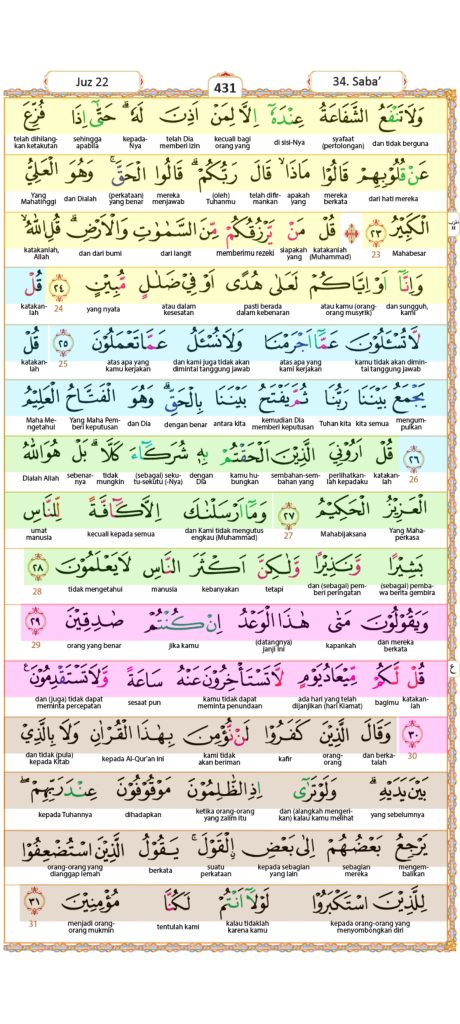 Juz 22
431
34. Saba’
وَلَا تَنْفَعُ الشَّفَاعَةُ عِنْدَهٗٓ اِلَّا لِمَنْ اَذِنَ لَهٗ ۗ حَتّٰٓى اِذَا فُزِّعَ
dan tidak berguna syafaat (pertolongan) di sisi-Nya kecuali bagi orang yang telah Dia memberi izin kepada-Nya sehingga apabila telah dihilang-kan ketakutan
عَنْ قُلُوْبِهِمْ قَالُوْا مَاذَاۙ قَالَ رَبُّكُمْ ۗ قَالُوا الْحَقَّ ۚ وَهُوَ الْعَلِيُّ
dari hati mereka mereka berkata apakah yang telah difir-mankan (oleh) Tuhanmu mereka menjawab (perkataan) yang benar dan Dialah Yang Mahatinggi
الْكَبِيْرُ ﴿٢٣﴾ ۞ قُلْ مَنْ يَّرْزُقُكُمْ مِّنَ السَّمٰوٰتِ وَالْاَرْضِ ۗ قُلِ اللّٰهُ ۙ
Mahabesar 23 katakanlah (Muhammad) siapakah yang memberimu rezeki dari langit dan dari bumi katakanlah, Allah
وَاِنَّآ اَوْ اِيَّاكُمْ لَعَلٰى هُدًى اَوْ فِيْ ضَلٰلٍ مُّبِيْنٍ ﴿٢٤﴾ قُلْ
dan sungguh, kami atau kamu (orang-orang musyrik) pasti berada dalam kebenaran atau dalam kesesatan yang nyata 24 katakan-lah
لَّا تُسْـَٔلُوْنَ عَمَّآ اَجْرَمْنَا وَلَا نُسْـَٔلُ عَمَّا تَعْمَلُوْنَ ﴿٢٥﴾ قُلْ
kamu tidak akan dimin-tai tanggung jawab atas apa yang kami kerjakan dan kami juga tidak akan dimintai tanggung jawab atas apa yang kamu kerjakan 25 katakan-lah
يَجْمَعُ بَيْنَنَا رَبُّنَا ثُمَّ يَفْتَحُ بَيْنَنَا بِالْحَقِّ ۗ وَهُوَ الْفَتَّاحُ الْعَلِيْمُ
mengum-pulkan kita semua Tuhan kita kemudian Dia memberi keputusan antara kita dengan benar dan Dia Yang Maha Pem-beri keputusan Maha Me-ngetahui
﴿٢٦﴾ قُلْ اَرُوْنِيَ الَّذِيْنَ اَلْحَقْتُمْ بِهٖ شُرَكَاۤءَ كَلَّا ۗ بَلْ هُوَ اللّٰهُ
26 katakan-lah perlihatkan-lah kepadaku sembahan-sem-bahan yang kamu hu-bungkan dengan Dia (sebagai) seku-tu-sekutu (-Nya) tidak mungkin sebenar-nya Dialah Allah
الْعَزِيْزُ الْحَكِيْمُ ﴿٢٧﴾ وَمَآ اَرْسَلْنٰكَ اِلَّا كَاۤفَّةً لِّلنَّاسِ
Yang Maha-perkasa Mahabijaksana 27 dan Kami tidak mengutus engkau (Muhammad) kecuali kepada semua umat manusia
بَشِيْرًا وَّنَذِيْرًا وَّلٰكِنَّ اَكْثَرَ النَّاسِ لَا يَعْلَمُوْنَ ﴿٢٨﴾
(sebagai) pemba-wa berita gembira dan (sebagai) pem-beri peringatan tetapi kebanyakan manusia tidak mengetahui 28
وَيَقُوْلُوْنَ مَتٰى هٰذَا الْوَعْدُ اِنْ كُنْتُمْ صٰدِقِيْنَ ﴿٢٩﴾
dan mereka berkata kapankah (datangnya) janji ini jika kamu orang yang benar 29
قُلْ لَّكُمْ مِّيْعَادُ يَوْمٍ لَّا تَسْتَأْخِرُوْنَ عَنْهُ سَاعَةً وَّلَا تَسْتَقْدِمُوْنَ ࣖ
katakan-lah bagimu ada hari yang telah dijanjikan (hari Kiamat) kamu tidak dapat meminta penundaan sesaat pun dan (juga) tidak dapat meminta percepatan
﴿٣٠﴾ وَقَالَ الَّذِيْنَ كَفَرُوْا لَنْ نُّؤْمِنَ بِهٰذَا الْقُرْاٰنِ وَلَا بِالَّذِيْ
30 dan berka-talah orang-orang kafir kami tidak akan beriman kepada Al-Qur’an ini dan tidak (pula) kepada Kitab
بَيْنَ يَدَيْهِ ۗ وَلَوْ تَرٰٓى اِذِ الظّٰلِمُوْنَ مَوْقُوْفُوْنَ عِنْدَ رَبِّهِمْ ۖ
yang sebelumnya dan (alangkah mengeri-kan) kalau kamu melihat ketika orang-orang yang zalim itu dihadapkan kepada Tuhannya
يَرْجِعُ بَعْضُهُمْ اِلٰى بَعْضِ ِۨالْقَوْلَ ۚ يَقُوْلُ الَّذِيْنَ اسْتُضْعِفُوْا
mengem-balikan sebagian mereka kepada sebagian yang lain suatu perkataan berkata orang-orang yang dianggap lemah
لِلَّذِيْنَ اسْتَكْبَرُوْا لَوْلَآ اَنْتُمْ لَكُنَّا مُؤْمِنِيْنَ ﴿٣١﴾
kepada orang-orang yang menyombongkan diri kalau tidaklah karena kamu tentulah kami menjadi orang-orang mukmin 31
ع